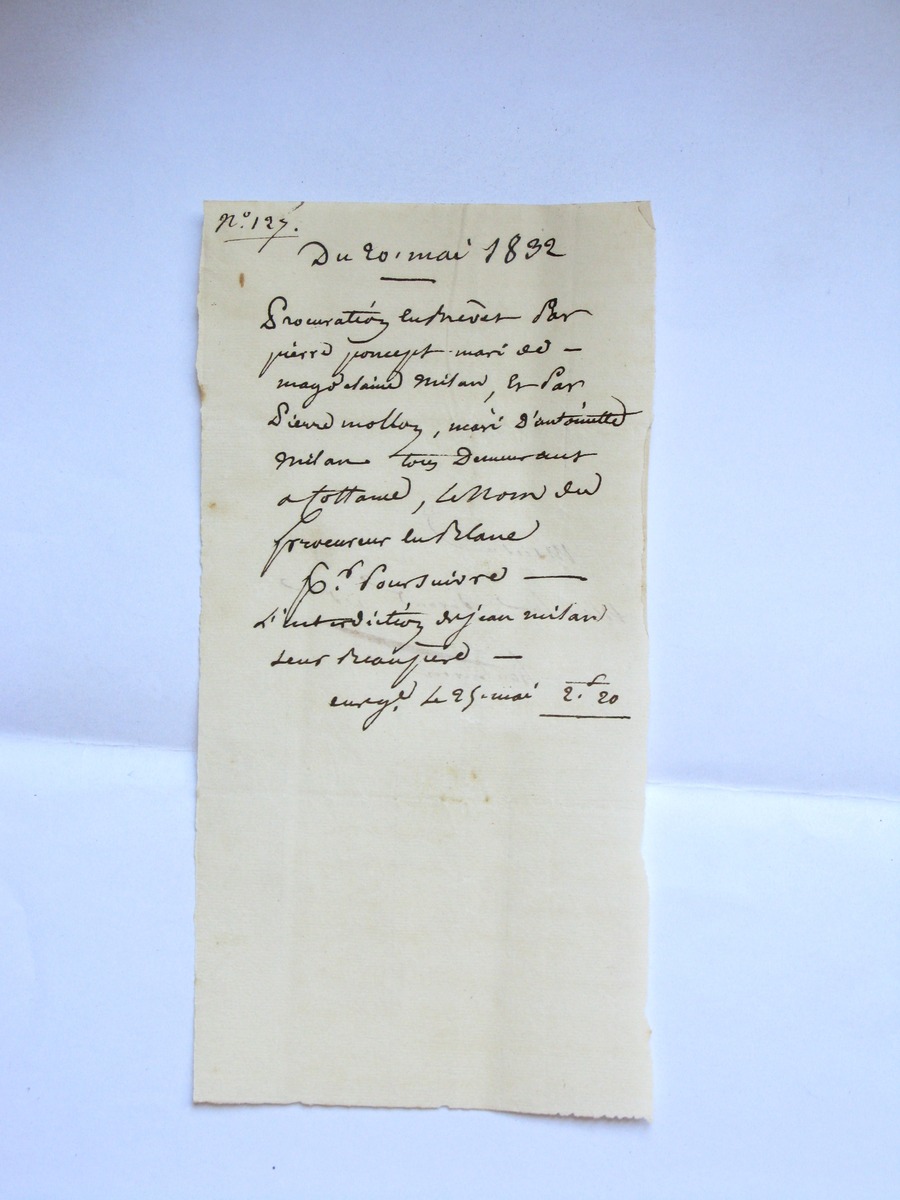 N.° 127.
Du 20. mai 1832
Procuration en Brèvet Par
pierre poncept mari de -
magdelaine milan, et Par
Pierre mollon, mari d'antoinette
milan tous Demeurant
a , Le Nom du
procureur en Blanc
p.r Poursuivre —
L'interdiction de jean milan
leur Beaupere —
enreg.é Le 25. mai 2.f 20